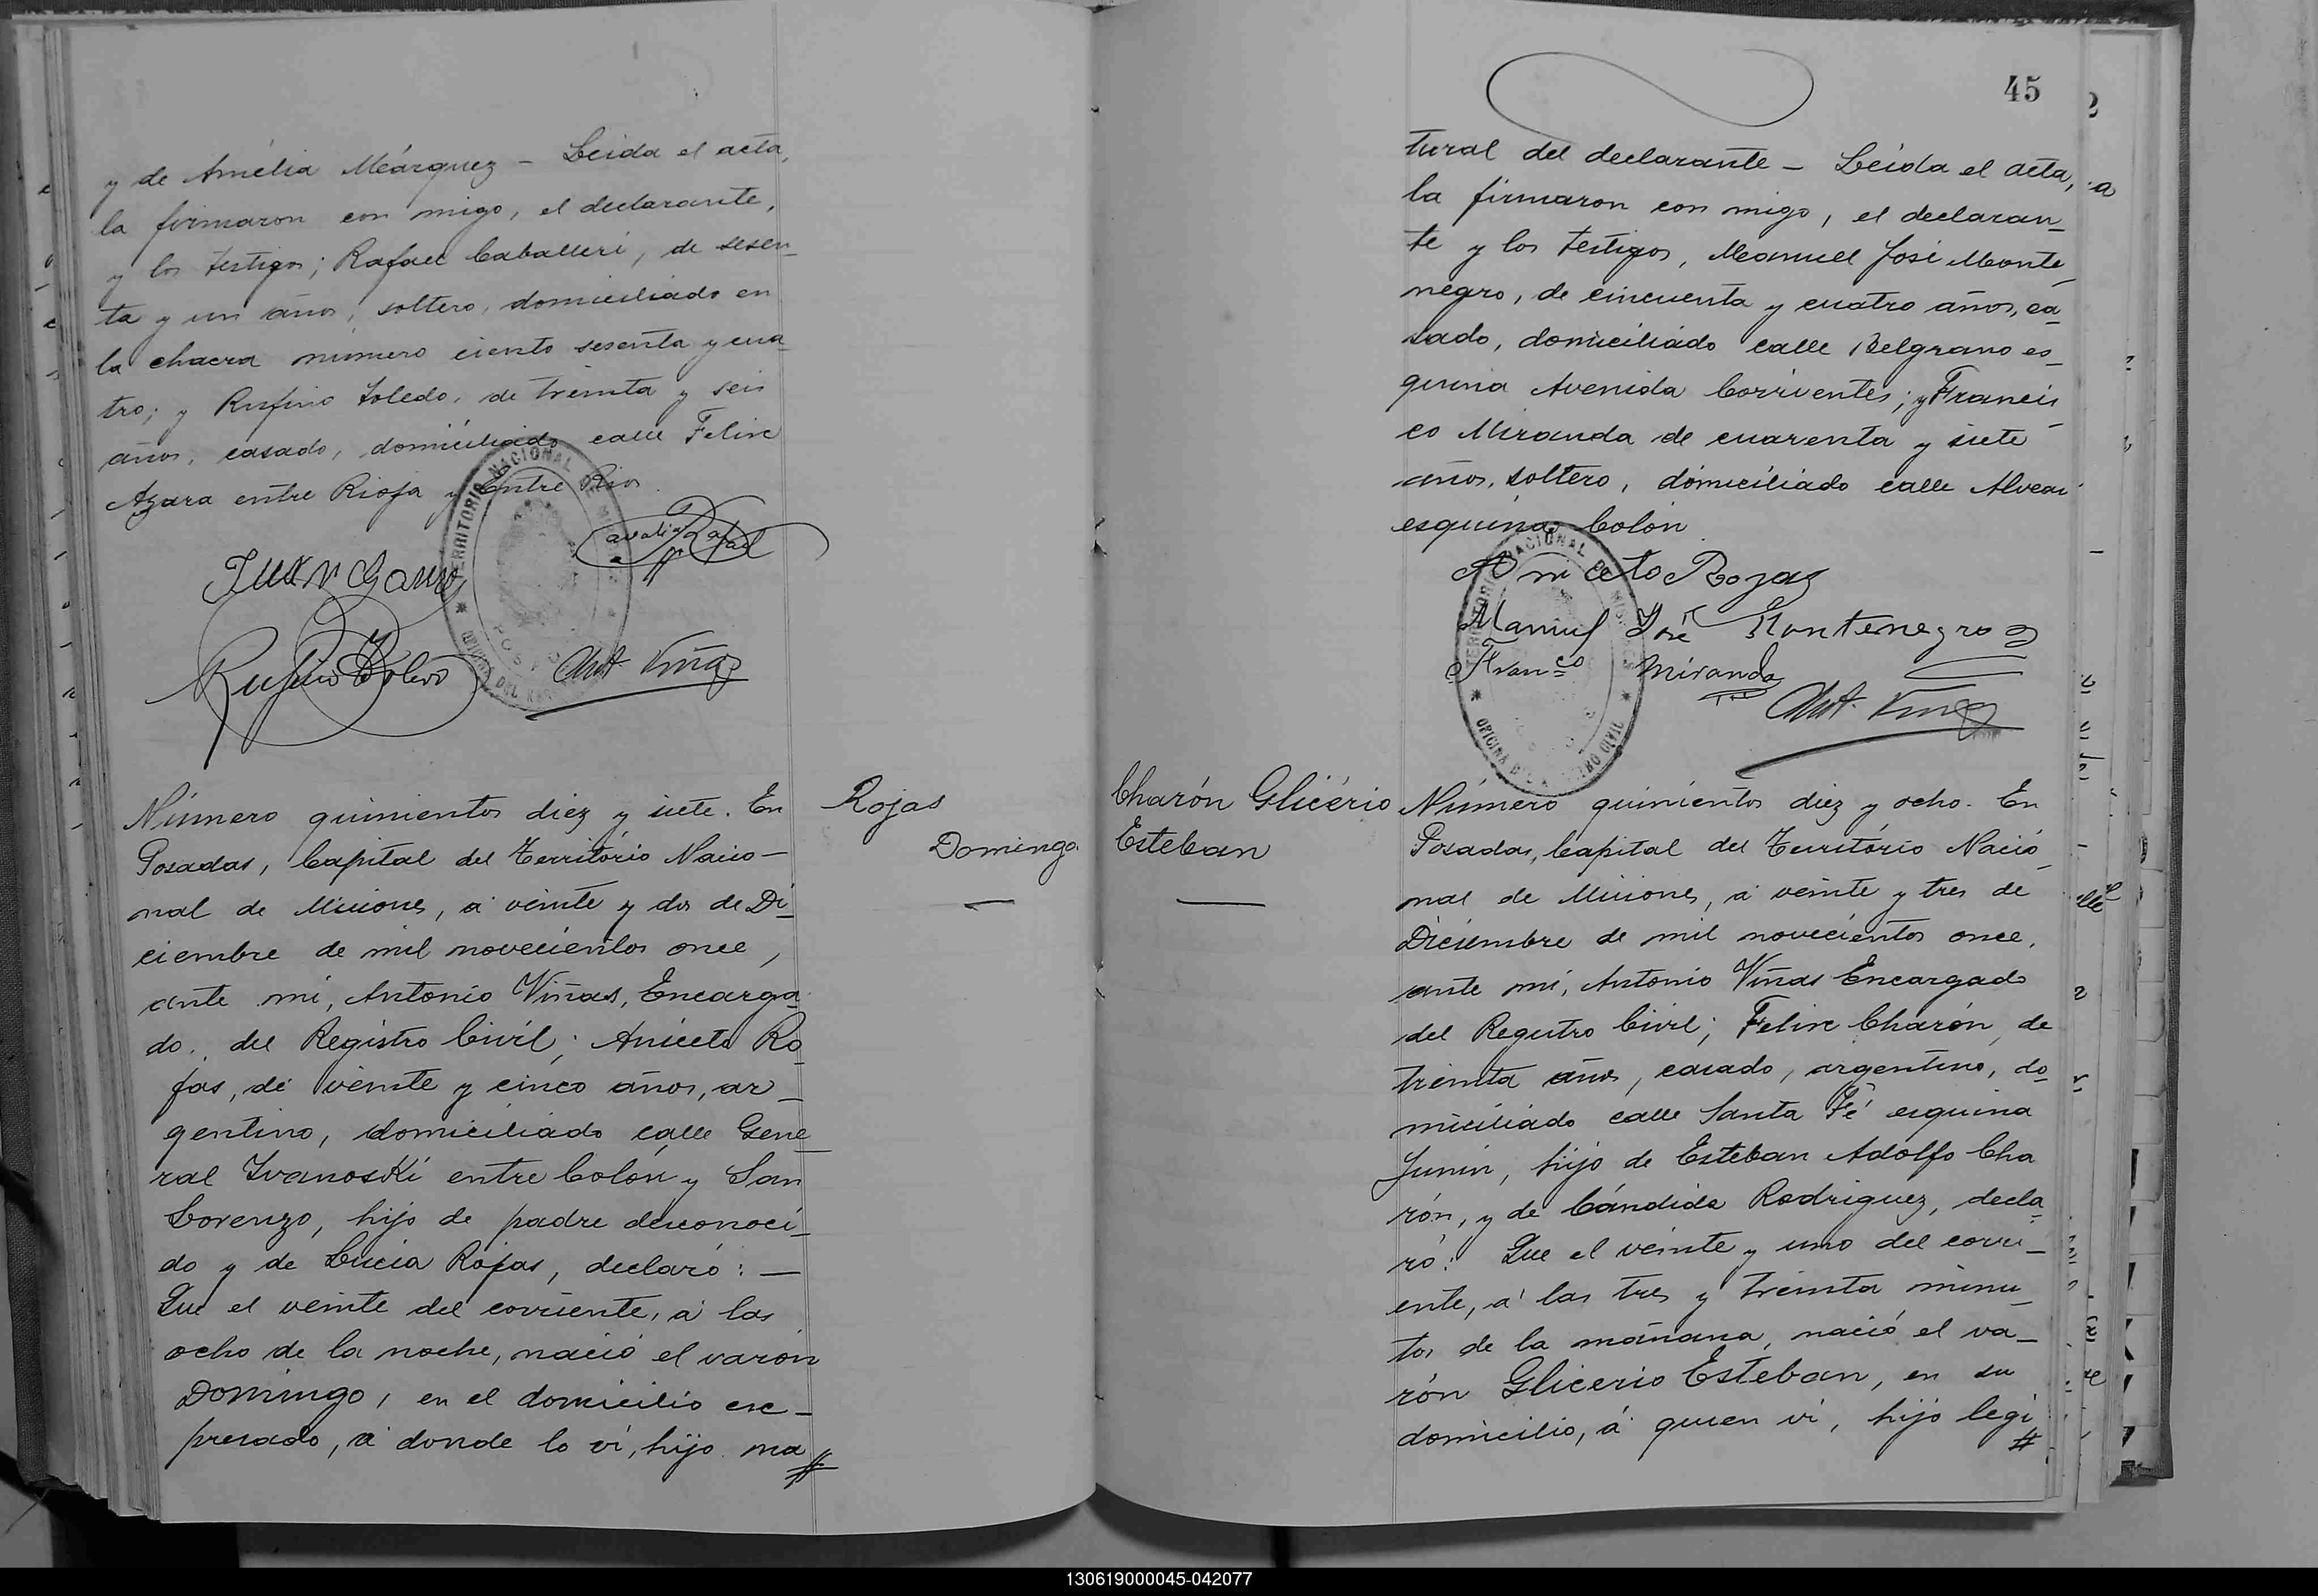 y de Amélia Márquez - Leida el acta,
la firmaron con migo, el declarante,
y los testigos; Rafael Caballeri, de sesen_
ta y un años, soltero, domiciliado en
la chacra número ciento sesenta y cua_
tro; y Rufino Toledo, de treinta y seis
años, casado, domiciliado calle Felix
Azara entre Rioja y Entre Rios.
TERRITORIO NACIONAL DE MISIONES
POSADAS
Rufino Toledo
Ant. Viñas
Número quinientos diez y siete. En
Posadas, Capital del Território Nacio-
nal de Misiones, á veinte y dos de Di_
ciembre de mil novecientos once,
ante mi, Antonio Viñas, Encarga_
do. del Registro Civil; Aniceto Ro_
jas, de veinte y cinco años, ar_
gentino, domiciliado calle Gene_
ral Ivanoski entre Colón y San
Lorenzo, hijo de padre desconoci_
do y de Lucia Rojas, declaró: -
Que el veinte del corriente, á las
ocho de la noche, nació el varón
Domingo, en el domicilio ex-
presado, á donde lo vi, hijo na
Rojas
Domingo
45
tural del declarante - Leida el acta,
la firmaron con migo, el declaran_
te y los testigos, Manuel José Monte_
negro, de cincuenta y cuatro años, ca_
sado, domiciliado calle Belgrano es_
quina Avenida Corrientes; y Francis_
co Miranda de cuarenta y siete
años, soltero, domiciliado calle Alvear
esquina Colón
Aniceto Rojas
Manuel José Montenegro
Franco Miranda
Ant. Viñas
TERRITORIO NACIONAL DE MISIONES
OFICINA DEL REGISTRO CIVIL
Charón Glicério
Esteban
Número quinientos diez y ocho. En
Posadas, Capital del Território Nació_
nal de Misiones, á veinte y tres de
Diciembre de mil novecientos once,
ante mi, Antonio Viñas Encargado
del Registro Civil; Felix Charón, de
treinta años, casado, argentino, do_
miciliado calle Santa Fé esquina
Junin, hijo de Esteban Adolfo Cha
rón, y de Cándida Rodriguez, decla_
ró: Que el veinte y uno del corri_
ente, á las tres y treinta minu_
tos de la mañana, nació el va_
rón Glicerio Esteban, en su
domicilio, á quien vi, hijo legi
130619000045-042077